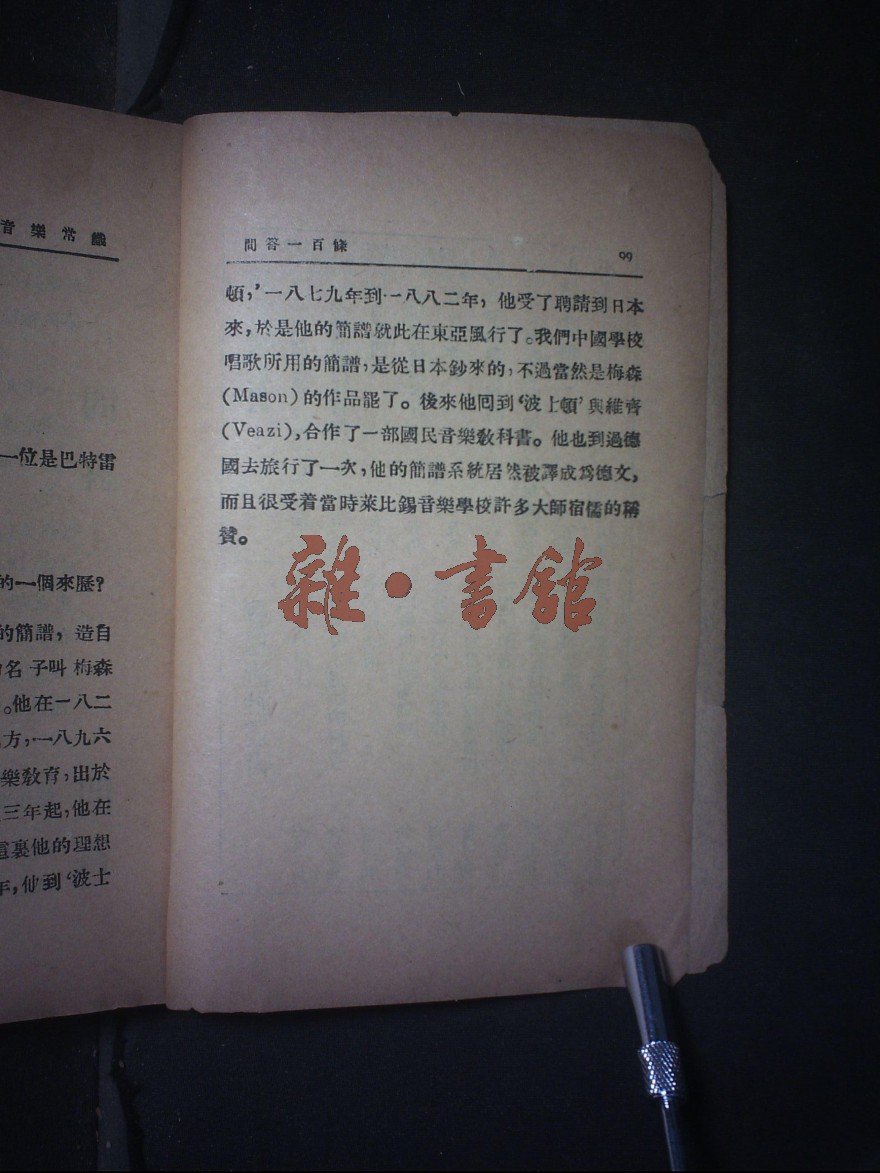 音樂常識
一位是巴特雷
的一個來歷?
的簡譜，造自
名 子叫 梅森
。他在一八二
方，一八九六
樂敎育，出於
三年起，他在
這裏他的理想
年，他到‘波士
問答一百條 99
頓，’一八七九年到一八八二年，他受了聘請到日本
來，於是他的簡譜就此在東亞風行了。我們中國學校
唱歌所用的簡譜，是從日本鈔來的，不過當然是梅森
(Mason)的作品罷了。後來他囘到‘波士頓’與維齊
(Veazi)，合作了一部國民音樂敎科書。他也到過德
國去旅行了一次，他的簡譜系統居然被譯成爲德文，
而且很受着當時萊比錫音樂學校許多大師宿儒的稱
贊。
雜·書館